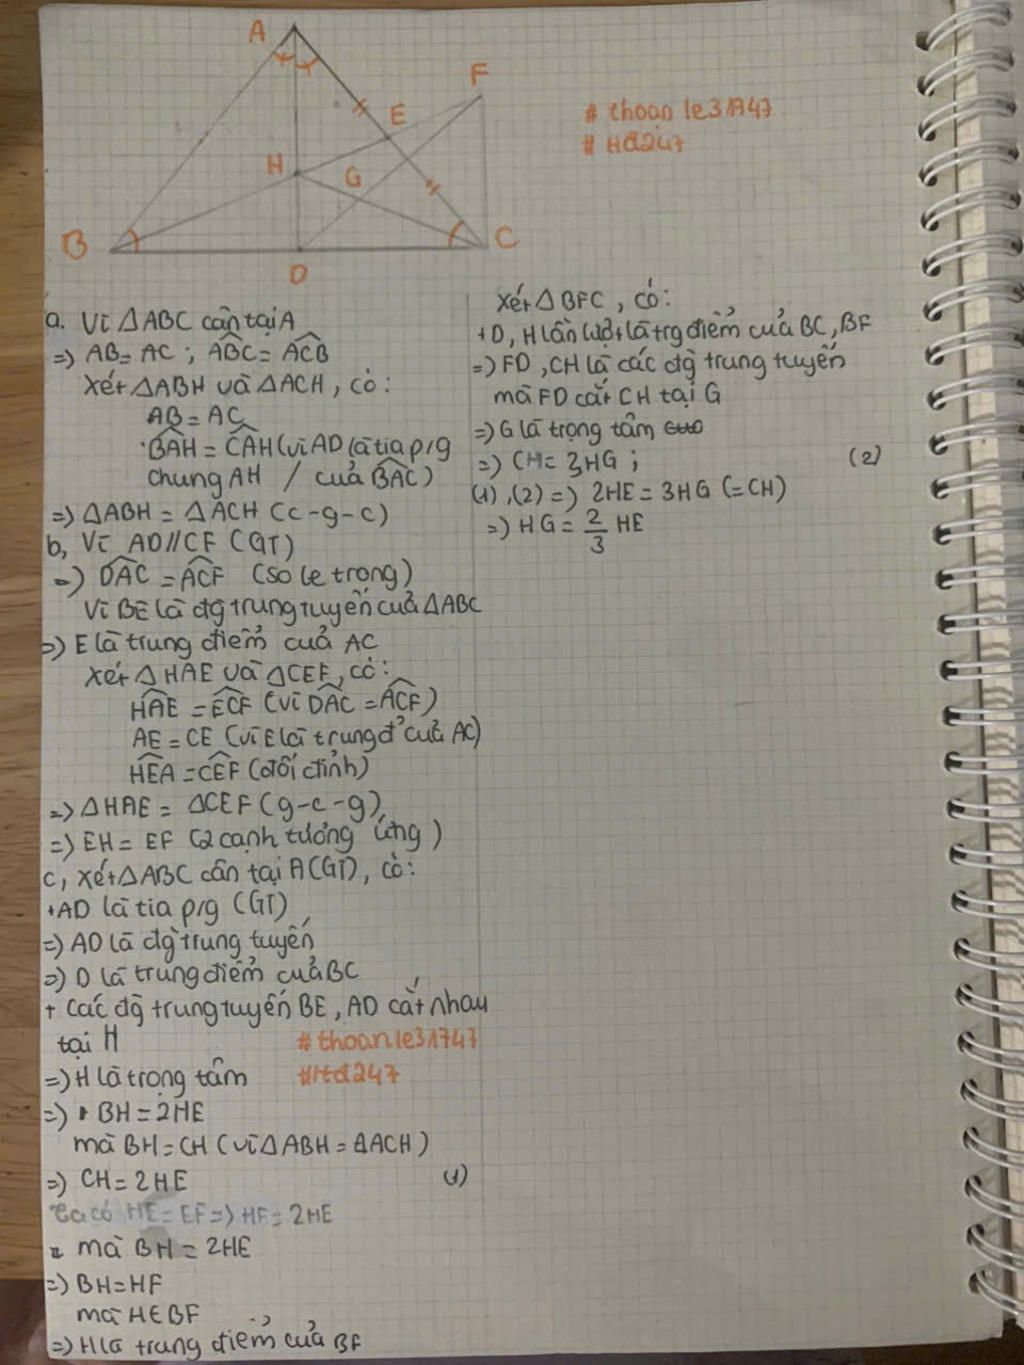 A
F
E
# thoanle31747
# Hđ247
H
G
B
C
D
a. Vì △ABC cân tại A
=> AB = AC ; ABC = ACB
Xét △ABH và △ACH, có:
AB = AC
BAH = CAH (vì AD là tia p/g
chung AH / của BAC)
=> △ABH = △ACH (c-g-c)
b, Vì AD // CF (GT)
=> DAC = ACF (so le trong)
Vì BE là đg trung tuyến của △ABC
=> E là trung điểm của AC
Xét △HAE và △CEF, có:
HAE = ECF (vì DAC = ACF)
AE = CE (vì E là trung đ' của AC)
HEA = CEF (đối đỉnh)
=> △HAE = △CEF (g-c-g)
=> EH = EF (2 cạnh tương ứng)
c, Xét △ABC cân tại A (GT), có:
+ AD là tia p/g (GT)
=> AD là đg trung tuyến
=> D là trung điểm của BC
+ Các đg trung tuyến BE, AD cắt nhau
tại H
# thoanle31747
=> H là trọng tâm
# Hđ247
=> BH = 2HE
mà BH = CH (vì △ABH = △ACH)
=> CH = 2HE (1)
Ta có HE = EF => HF = 2HE
mà BH = 2HE
=> BH = HF
mà H ∈ BF
=> H là trung điểm của BF
Xét △BFC, có:
+ D, H lần lượt là trg điểm của BC, BF
=> FD, CH là các đg trung tuyến
mà FD cắt CH tại G
=> G là trọng tâm
=> CH = 3HG ; (2)
(1), (2) => 2HE = 3HG (= CH)
=> HG = 2/3 HE